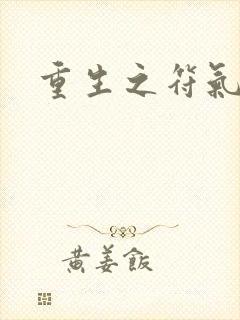 重生之符氣
黃姜飯